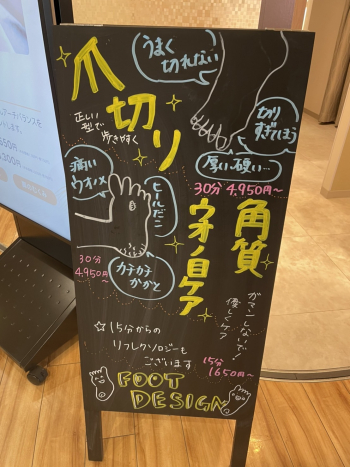 うまく
切れない
爪切り
正しい
型で
歩きやすく
切り
すぎちゃう
厚い・硬い…
30分 4,950円～
痛い
ウオノメ
ヒールだこ
角質
ウオノ目ケア
カチカチ
かかと
30分
4,950円～
ガマンしないで！
優しくケア
☆15分からの
リフレクソロジーも
ございます
15分
1650円～
FOOT
DESIGN